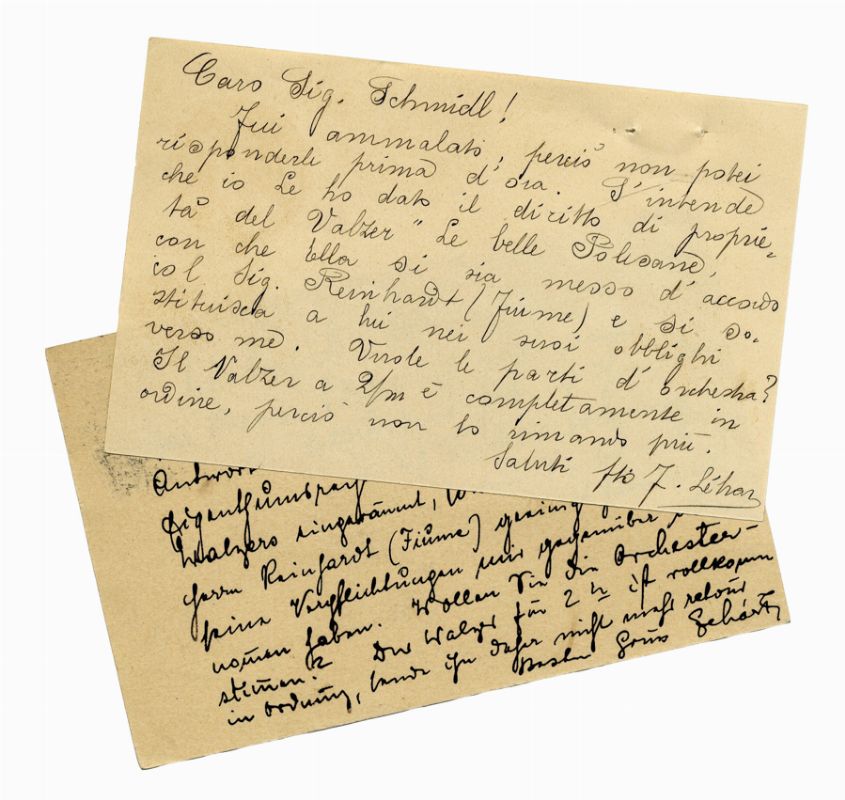 Caro Sig. Schmidl!
Fui ammalato, perciò non potei
risponderle prima d'ora. S'intende
che io Le ho dato il diritto di proprie-
tà del Valzer "Le belle Polesane,
con che Ella si sia messo d'accordo
col Sig. Reinhardt (Fiume) e si so-
stituisca a lui nei suoi obblighi
verso me. Vuole le parti d'orchestra?
Il Valzer a 2/m è completamente in
ordine, perciò non lo rimando più.
Saluti fto F. Léhar
Antwort
Eigenthumsrecht
Walzers eingeräumt,
Herrn Reinhardt (Fiume) geeinigt
seine Verpflichtungen mir gegenüber
nomen haben. Wollen Sie die Orchester-
stimen? Der Walzer für 2 h ist vollkomen
in Ordnung, sende ihn daher nicht mehr retour
Besten Gruss Lehár